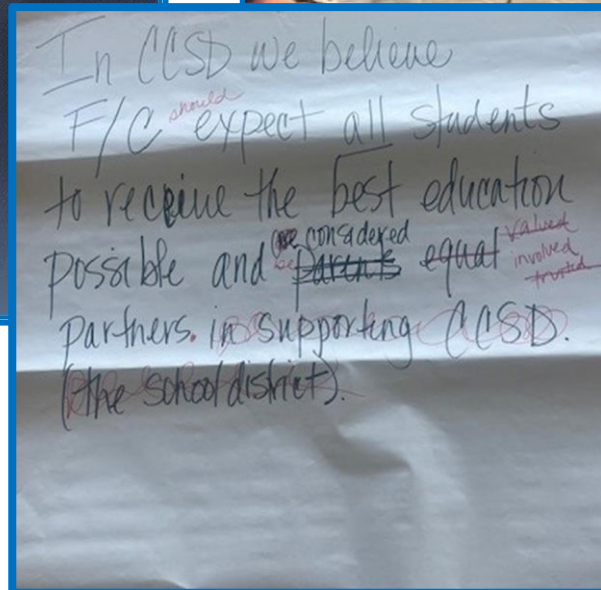 In CCSD we believe
F/C should expect all students
to receive the best education
possible and be considered parents equal valued
involved
trusted
partners. in supporting CCSD.
(the school district).